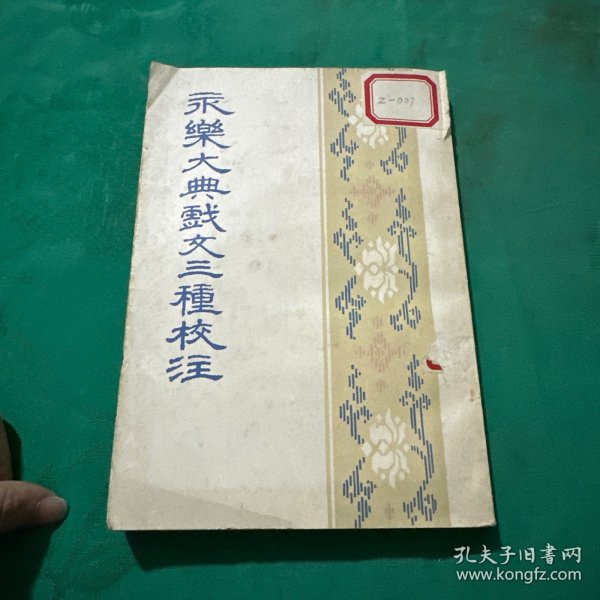 永樂大典戲文三種校注
Z-007
孔夫子旧书网
www.kongfz.com